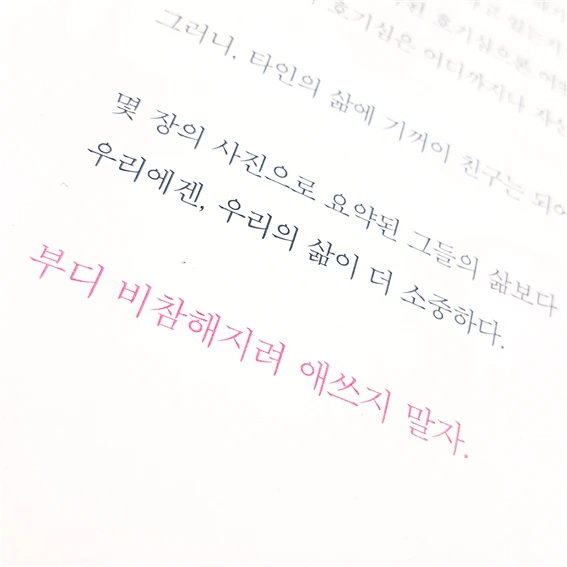 호기심으론
호기심은 어디까지나
그러니, 타인의 삶에 기꺼이 친구는 되어
몇 장의 사진으로 요약된 그들의 삶보다
우리에겐, 우리의 삶이 더 소중하다.
부디 비참해지려 애쓰지 말자.